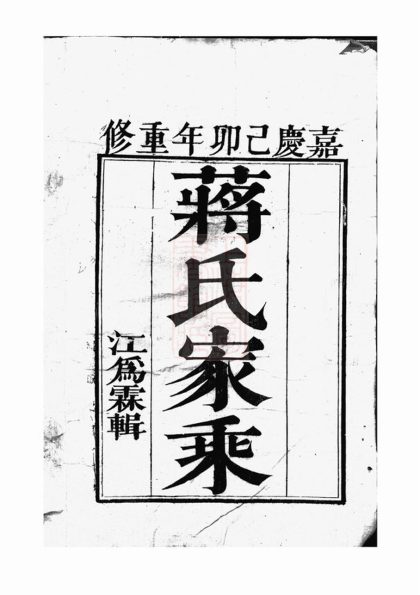 嘉慶己卯年重修
蔣氏家乘
江為霖輯